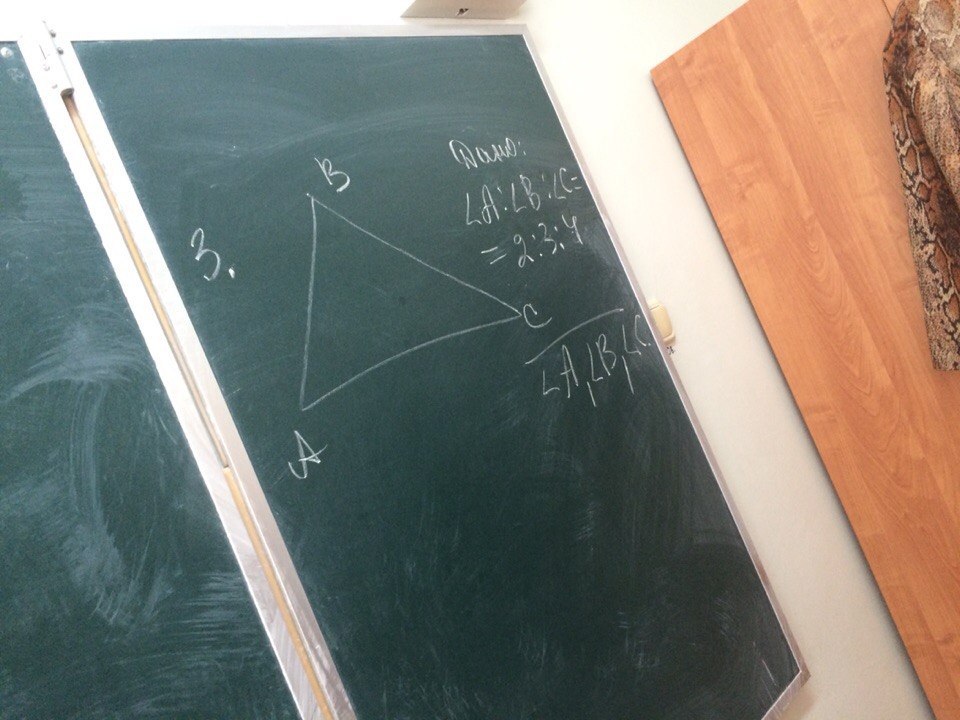 3.
B
C
A
Дано:
∠A:∠B:∠C=
= 2:3:4
∠A,∠B,∠C